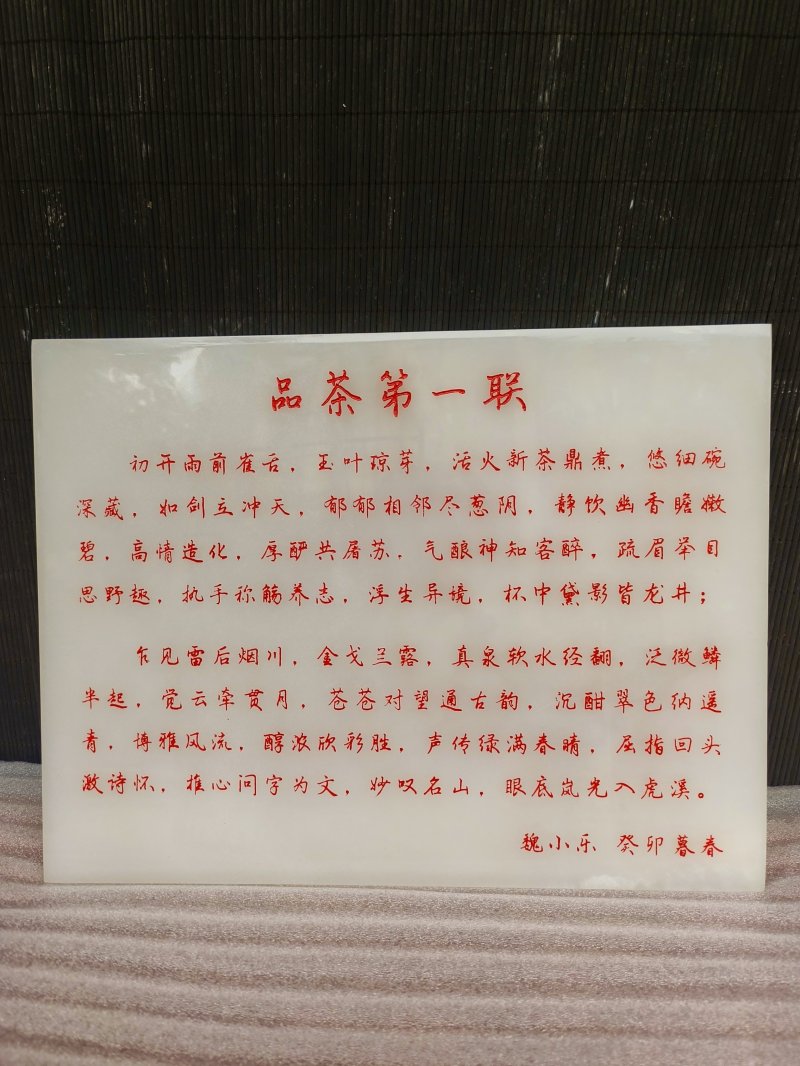 品茶第一联
初开雨前雀舌，玉叶琼芽，活火新茶鼎煮，悠细碗
深藏，如剑立冲天，郁郁相邻尽葱阴，静饮幽香瞻嫩
碧，高情造化，厚酽共屠苏，气酿神知客醉，疏眉举目
思野趣，执手称觞养志，浮生异境，杯中黛影皆龙井；
乍见雷后烟川，金戈兰露，真泉软水经翻，泛微鳞
半起，觉云牵贯月，苍苍对望通古韵，沉酣翠色纳遥
青，博雅风流，醇浓欣彩胜，声传绿满春晴，屈指回头
激诗怀，推心问字为文，妙叹名山，眼底岚光入虎溪。
魏小乐 癸卯暮春